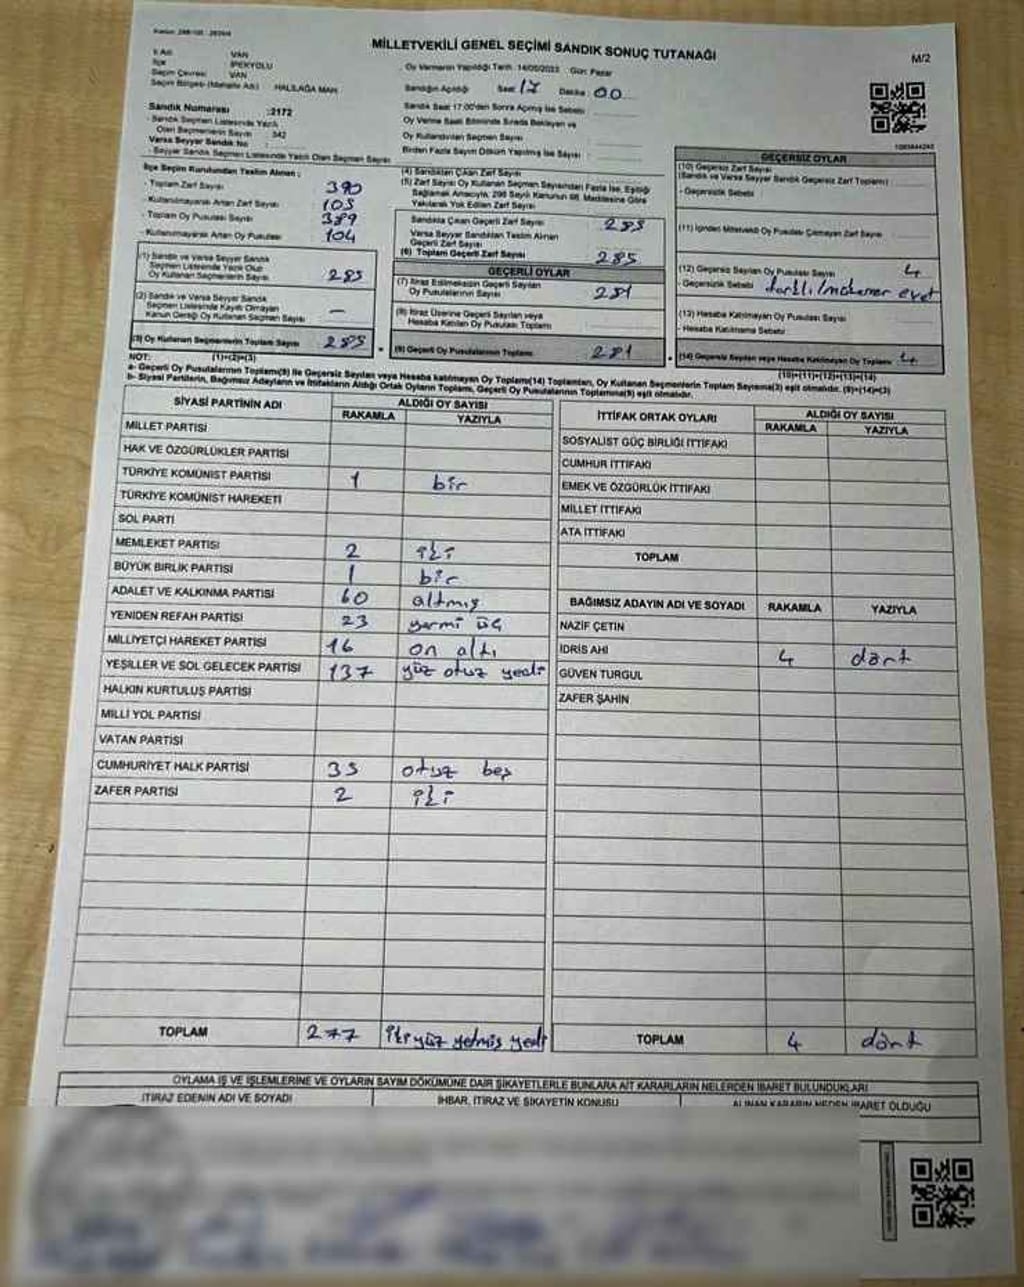 MİLLETVEKİLİ GENEL SEÇİMİ SANDIK SONUÇ TUTANAĞI
M/2
İl Adı VAN
İlçe İPEKYOLU
Seçim Çevresi VAN
Seçim Bölgesi (Mahalle Adı) HALİLAĞA MAH.
Oy Vermenin Yapıldığı Tarih: 14/05/2023 Gün: Pazar
Sandığın Açıldığı Saat 17 Dakika 00
Sandık Saat 17:00'den Sonra Açılmış İse Sebebi
Oy Verme Saati Bitiminde Sırada Bekleyen ve
Oy Kullandırılan Seçmen Sayısı
Birden Fazla Sayım Döküm Yapılmış İse Sayısı
Sandık Numarası :2172
- Sandık Seçmen Listesinde Yazılı
Olan Seçmenlerin Sayısı : 342
Varsa Seyyar Sandık No
- Seyyar Sandık Seçmen Listesinde Yazılı Olan Seçmen Sayısı
İlçe Seçim Kurulundan Teslim Alınan ;
- Toplam Zarf Sayısı 390
- Kullanılmayarak Artan Zarf Sayısı 105
- Toplam Oy Pusulası Sayısı 389
- Kullanılmayarak Artan Oy Pusulası 104
(1) Sandık ve Varsa Seyyar Sandık
Seçmen Listesinde Yazılı Olup
Oy Kullanan Seçmenlerin Sayısı 285
(2) Sandık ve Varsa Seyyar Sandık
Seçmen Listesinde Kayıtlı Olmayan
Kanun Gereği Oy Kullanan Seçmen Sayısı —
(3) Oy Kullanan Seçmenlerin Toplam Sayısı 285
(1)+(2)=(3)
(4) Sandıktan Çıkan Zarf Sayısı
(5) Zarf Sayısı Oy Kullanan Seçmen Sayısından Fazla İse, Eşitliği
Sağlamak Amacıyla; 298 Sayılı Kanunun 98. Maddesine Göre
Yakılarak Yok Edilen Zarf Sayısı
Sandıkta Çıkan Geçerli Zarf Sayısı 285
Varsa Seyyar Sandıktan Teslim Alınan
Geçerli Zarf Sayısı
(6) Toplam Geçerli Zarf Sayısı 285
GEÇERLİ OYLAR
(7) İtiraz Edilmeksizin Geçerli Sayılan
Oy Pusulalarının Sayısı 281
(8) İtiraz Üzerine Geçerli Sayılan veya
Hesaba Katılan Oy Pusulası Toplamı
(9) Geçerli Oy Pusulalarının Toplamı 281
GEÇERSİZ OYLAR
(10) Geçersiz Zarf Sayısı
(Sandık ve Varsa Seyyar Sandık Geçersiz Zarf Toplamı)
- Geçersizlik Sebebi
(11) İçinden Milletvekili Oy Pusulası Çıkmayan Zarf Sayısı
(12) Geçersiz Sayılan Oy Pusulası Sayısı 4
- Geçersizlik Sebebi
(13) Hesaba Katılmayan Oy Pusulası Sayısı
- Hesaba Katılmama Sebebi
(14) Geçersiz Sayılan veya Hesaba Katılmayan Oy Toplamı 4
(10)+(11)+(12)+(13)=(14)
NOT:
a- Geçerli Oy Pusulalarının Toplamı(9) ile Geçersiz Sayılan veya Hesaba katılmayan Oy Toplamı(14) Toplamları, Oy Kullanan Seçmenlerin Toplam Sayısına(3) eşit olmalıdır. (9)+(14)=(3)
b- Siyasi Partilerin, Bağımsız Adayların ve İttifakların Aldığı Ortak Oyların Toplamı, Geçerli Oy Pusulalarının Toplamına(9) eşit olmalıdır.
SİYASİ PARTİNİN ADI ALDIĞI OY SAYISI
RAKAMLA YAZIYLA
MİLLET PARTİSİ
HAK VE ÖZGÜRLÜKLER PARTİSİ
TÜRKİYE KOMÜNİST PARTİSİ 1 bir
TÜRKİYE KOMÜNİST HAREKETİ
SOL PARTİ
MEMLEKET PARTİSİ 2 iki
BÜYÜK BİRLİK PARTİSİ 1 bir
ADALET VE KALKINMA PARTİSİ 60 altmış
YENİDEN REFAH PARTİSİ 23 yirmi üç
MİLLİYETÇİ HAREKET PARTİSİ 16 on altı
YEŞİLLER VE SOL GELECEK PARTİSİ 137 yüz otuz yedi
HALKIN KURTULUŞ PARTİSİ
MİLLİ YOL PARTİSİ
VATAN PARTİSİ
CUMHURİYET HALK PARTİSİ 35 otuz beş
ZAFER PARTİSİ 2 iki
TOPLAM 277 iki yüz yetmiş yedi
İTTİFAK ORTAK OYLARI ALDIĞI OY SAYISI
RAKAMLA YAZIYLA
SOSYALİST GÜÇ BİRLİĞİ İTTİFAKI
CUMHUR İTTİFAKI
EMEK VE ÖZGÜRLÜK İTTİFAKI
MİLLET İTTİFAKI
ATA İTTİFAKI
TOPLAM
BAĞIMSIZ ADAYIN ADI VE SOYADI RAKAMLA YAZIYLA
NAZİF ÇETİN
İDRİS AHİ 4 dört
GÜVEN TURGUL
ZAFER ŞAHİN
TOPLAM 4 dört
OYLAMA İŞ VE İŞLEMLERİNE VE OYLARIN SAYIM DÖKÜMÜNE DAİR ŞİKAYETLERLE BUNLARA AİT KARARLARIN NELERDEN İBARET BULUNDUKLARI
İTİRAZ EDENİN ADI VE SOYADI İHBAR, İTİRAZ VE ŞİKAYETİN KONUSU ALINAN KARARIN NEDEN İBARET OLDUĞU